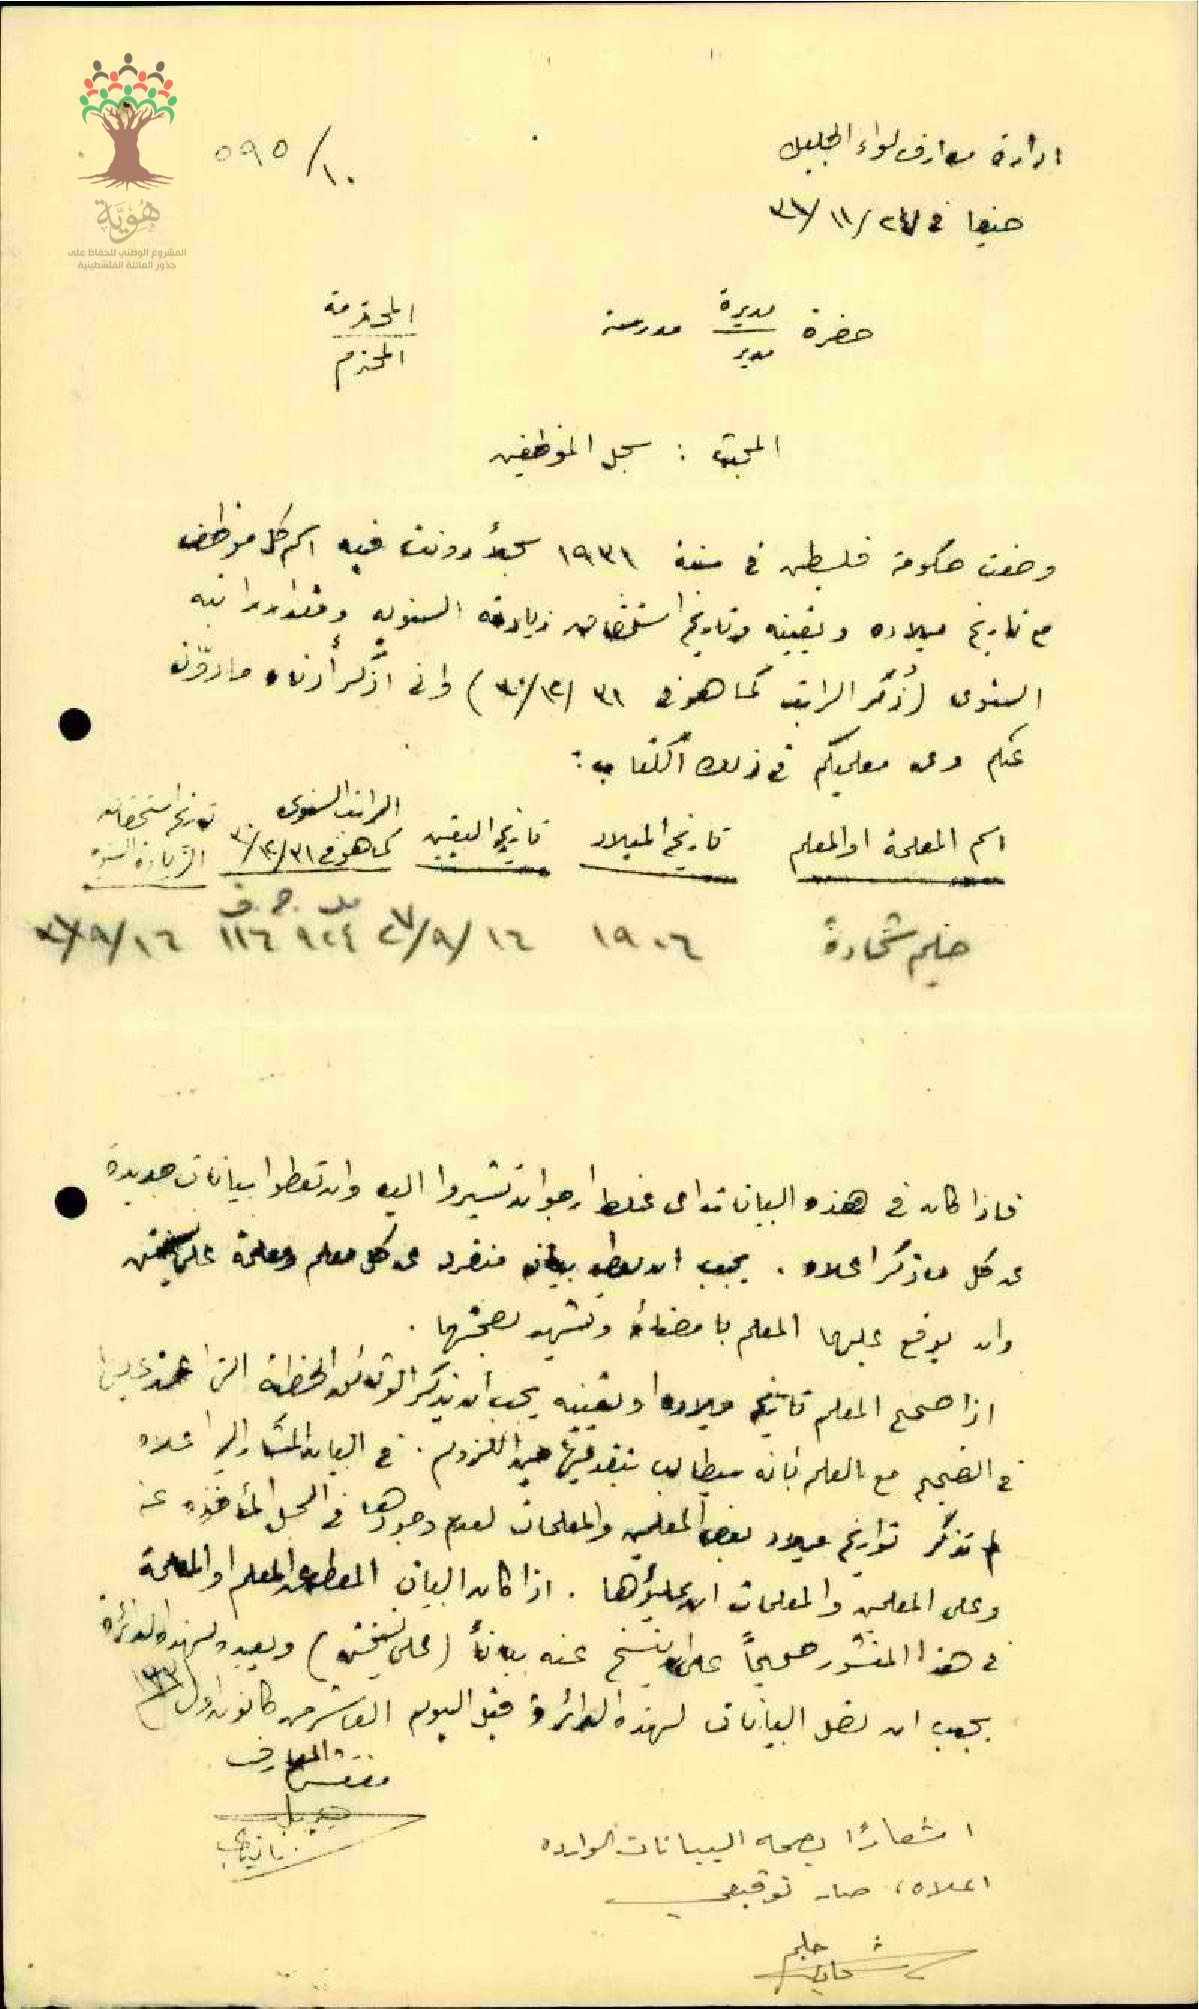 هُوِيَّة
المشروع الوطني للحفاظ على
جذور العائلة الفلسطينية
ادارة معارف لواء الجليل
١٠/٥٩٥
حيفا في ٢٤/١١/٣١
حضرة مديرة مدرسة المحترمة
مدير المحترم
المبحث : سجل الموظفين
وضعت حكومة فلسطين في سنة ١٩٣١ سجلاً دونت فيه اسم كل موظف
مع تاريخ ميلاده وتعيينه وتاريخ استحقاق زيادته السنويه ومقدار راتبه
السنوى (ذكر الراتب كما هو في ٣١/١٢/٣٠) واني اذكر أدناه ما دوّن
عنكم وعن معلميكم في ذلك الكتاب :
اسم المعلمة او المعلم تاريخ الميلاد تاريخ التعيين الراتب السنوى كما هو في ٣١/١٢/٣٠ تاريخ استحقاق الزيادة السنوية
مل ج.ف
حليم شحادة ١٩٠٦ ١٦/٩/٢٧ ٩٢٤ ١١٦ ١٦/٩
فاذا كان في هذه البيانات اى غلط ارجو ان تشيروا اليه وان تعطوا بيانات جديدة
عن كل ما ذكر اعلاه . يجب ان يعطى بيان منفرد عن كل معلم ومعلمة على نسختين
وان يوقع عليها المعلم بامضائه وتشهد بصحتها .
اذا صحح المعلم تاريخ ميلاده او تعيينه يجب ان يذكر الوثائق الخطية التى اعتمد عليها
في التصحيح مع العلم بانه سيطالب بتقديمها حين اللزوم . في البيان المشار اليه اعلاه
لم تذكر تواريخ ميلاد بعض المعلمين والمعلمات لعدم وجودها في السجل المأخوذه عنه
وعلى المعلمين والمعلمات ان يملؤها . اذا كان البيان المعطى عن المعلم او المعلمة
في هذا المنشور صحيحاً عليه ان ينسخ عنه بياناً (على نسختين) ويعيده لهذه الدائرة
يجب ان تصل البيانات لهذه الدائرة قبل اليوم العاشر من كانون اول
مفتش المعارف
اشعارًا بصحه البيانات الوارده
اعلاه، صار توقيعي
حليم
شحادة